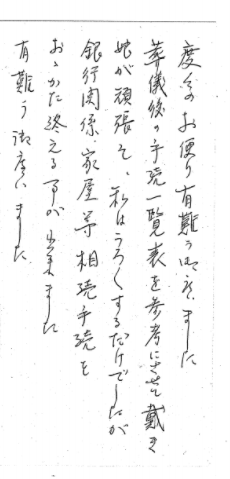 度々のお便り有難う御座いました
葬儀後の手続一覧表を参考にさせて戴き
娘が頑張って、私はうろうろするだけでしたが
銀行関係、家屋等相続手続を
おおかた終える事が出来ました
有難う御座いました